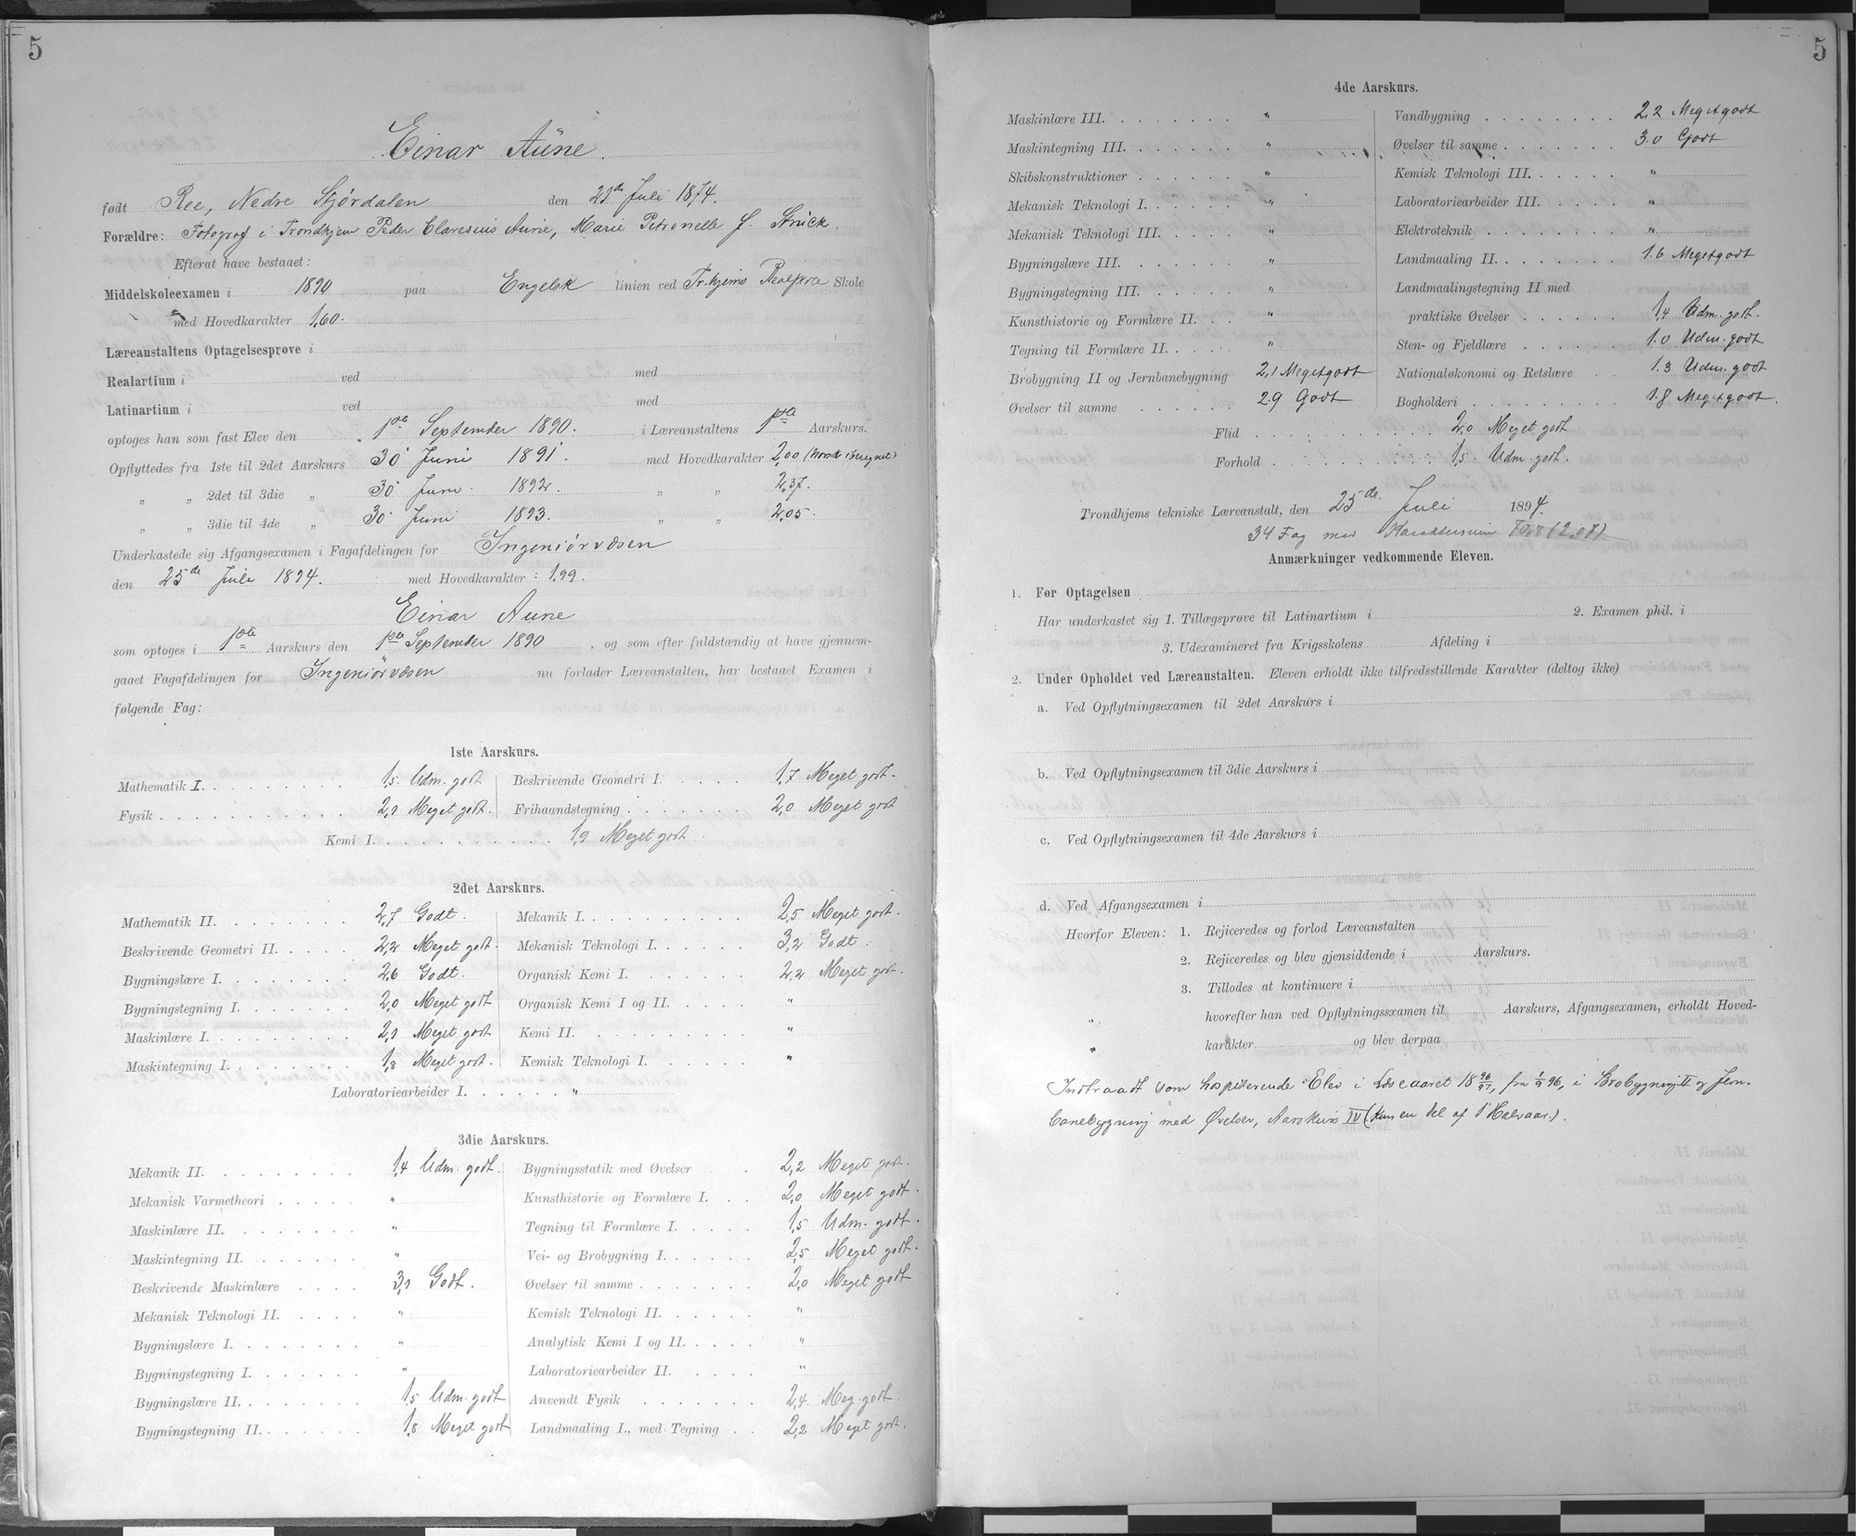 5
Einar Aüne.
født Ree, Nedre Stjørdalen den 23de Juli 1874.
Forældre: Fotograf i Trondhjem Peder Claresius Aune, Marie Petronelle f. Strück.
Efterat have bestaaet:
Middelskoleexamen i 1890 paa Engelsk linien ved Tr.hjems Skole
med Hovedkarakter 1,60.
Læreanstaltens Optagelsesprøve i
Realartium i ved med
Latinartium i ved med
optoges han som fast Elev den 1ste September 1890. i Læreanstaltens 1ste Aarskurs.
Opflyttedes fra 1ste til 2det Aarskurs 30 Juni 1891. med Hovedkarakter 2,00
„ „ 2det til 3die „ 30 Juni 1892. „ „ 2,37.
„ „ 3die til 4de „ 30 Juni 1893. „ „ 2,05.
Underkastede sig Afgangsexamen i Fagafdelingen for Ingeniørvæsen
den 25de Juli 1894. med Hovedkarakter: 1,99.
Einar Aune
som optoges i 1ste Aarskurs den 1ste September 1890, og som efter fuldstændig at have gjennem-
gaaet Fagafdelingen for Ingeniørvæsen nu forlader Læreanstalten, har bestaaet Examen i
følgende Fag:
1ste Aarskurs.
Mathematik I. 1,5 Udm. godt Beskrivende Geometri I. 1,7 Meget godt.
Fysik 2,1 Meget godt. Frihaandstegning 2,0 Meget godt
Kemi I. 1,9 Meget godt
2det Aarskurs.
Mathematik II. 2,7 Godt. Mekanik I. 2,5 Meget godt.
Beskrivende Geometri II. 2,2 Meget godt. Mekanisk Teknologi I. 3,2 Godt.
Bygningslære I. 2,6 Godt. Organisk Kemi I. 2,2 Meget godt.
Bygningstegning I. 2,0 Meget godt Organisk Kemi I og II. "
Maskinlære I. 2,1 Meget godt Kemi II. "
Maskintegning I. 1,8 Meget godt. Kemisk Teknologi I. "
Laboratoriearbeider I. "
3die Aarskurs.
Mekanik II. 1,4 Udm. godt. Bygningsstatik med Øvelser 2,2 Meget godt.
Mekanisk Varmetheori " Kunsthistorie og Formlære I. 2,0 Meget godt.
Maskinlære II. " Tegning til Formlære I. 1,5 Udm. godt.
Maskintegning II. " Vei- og Brobygning I. 2,5 Meget godt.
Beskrivende Maskinlære 3,1 Godt. Øvelser til samme 2,0 Meget godt
Mekanisk Teknologi II. " Kemisk Teknologi II. "
Bygningslære I. " Analytisk Kemi I og II. "
Bygningstegning I. " Laboratoriearbeider II. "
Bygningslære II. 1,5 Udm. godt Anvendt Fysik 2,4 Meg. godt
Bygningstegning II. 1,8 Meget godt Landmaaling I., med Tegning 2,2 Meget godt.
5
4de Aarskurs.
Maskinlære III. " Vandbygning 2,2 Megetgodt
Maskintegning III. " Øvelser til samme 3.0 Godt
Skibskonstruktioner " Kemisk Teknologi III. "
Mekanisk Teknologi I. " Laboratoriearbeider III. "
Mekanisk Teknologi III. " Elektroteknik "
Bygningslære III. " Landmaaling II. 1.6 Megetgodt
Bygningstegning III. " Landmaalingstegning II med
Kunsthistorie og Formlære II. " praktiske Øvelser 1,4 Udm. godt.
Tegning til Formlære II. " Sten- og Fjeldlære 1.0 Udm. godt
Brobygning II og Jernbanebygning 2,1 Megetgodt Nationaløkonomi og Retslære 1.3 Udm. godt
Øvelser til samme 2.9 Godt Bogholderi 1.8 Megetgodt.
Flid 2,0 Meget godt
Forhold 1,5 Udm. godt.
Trondhjems tekniske Læreanstalt, den 25de. Juli 1894.
34 Fag med Karaktersum (2,07)
Anmærkninger vedkommende Eleven.
1. Før Optagelsen
Har underkastet sig 1. Tillægsprøve til Latinartium i 2. Examen phil. i
3. Udexamineret fra Krigsskolens Afdeling i
2. Under Opholdet ved Læreanstalten. Eleven erholdt ikke tilfredsstillende Karakter (deltog ikke)
a. Ved Opflytningsexamen til 2det Aarskurs i
b. Ved Opflytningsexamen til 3die Aarskurs i
c. Ved Opflytningsexamen til 4de Aarskurs i
d. Ved Afgangsexamen i
Hvorfor Eleven: 1. Rejiceredes og forlod Læreanstalten
2. Rejiceredes og blev gjensiddende i Aarskurs.
3. Tillodes at kontinuere i
" hvorefter han ved Opflytningssxamen til Aarskurs, Afgangsexamen, erholdt Hoved-
" karakter og blev derpaa
Indtraadt som hospiterende Elev i Læseaaret 18 96/97, fra 1/9 96, i Brobygning II og Jern-
banebygning med Øvelser, Aarskurs IV (kun en Del af 1ste Halvaar.).